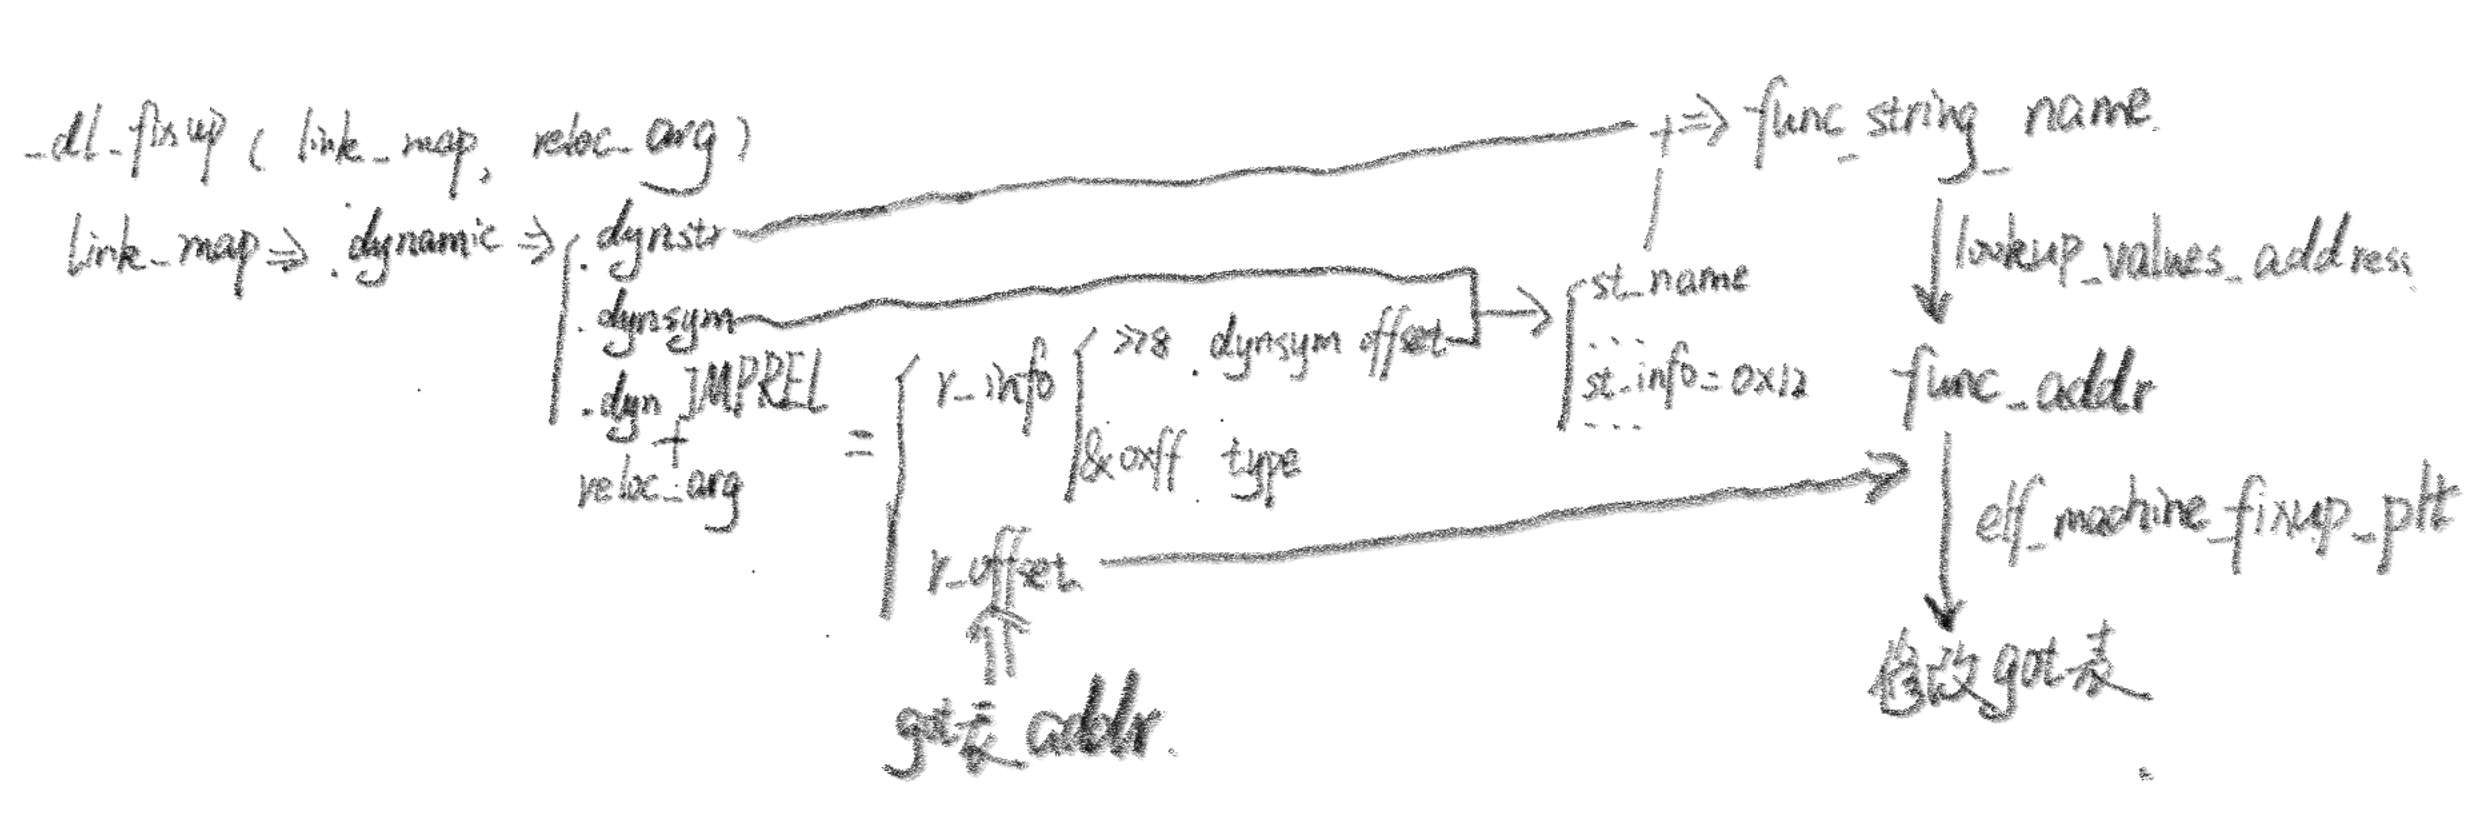 _dl_fixup ( link_map, reloc_arg )
link_map ⇒ .dynamic ⇒
.dynstr
.dynsym
.dyn JMPREL
+
reloc_arg
=
r_info
>>8 .dynsym offset
&0xff type
r_offset
got表 addr.
st_name
...
st_info = 0x12
...
+ ⇒ func_string_name.
lookup_values_address
func_addr
elf_machine_fixup_plt
修改got表